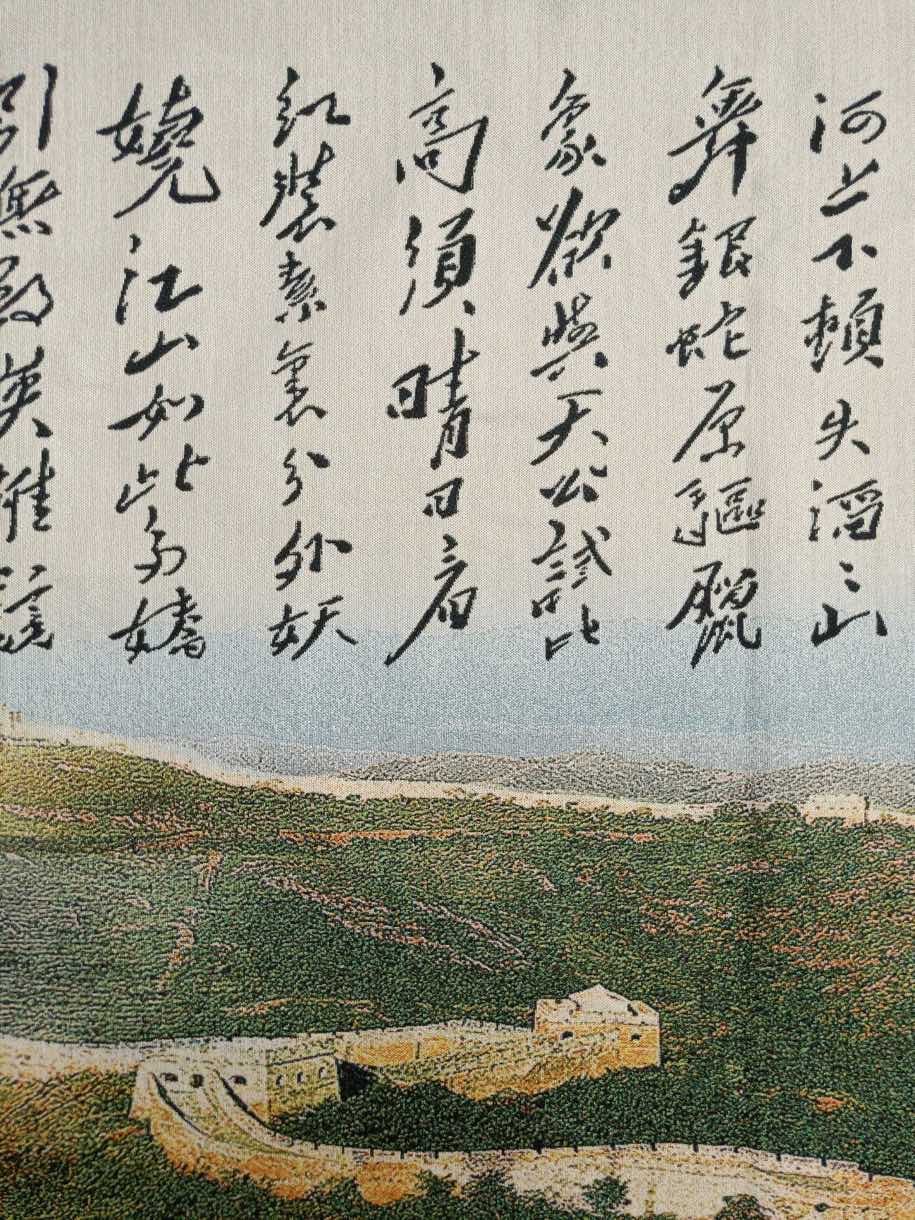 河上下頓失滔〻山
舞銀蛇原驅臘
象欲與天公試比
高須晴日看
紅裝素裹分外妖
嬈江山如此多嬌
引無數英雄競